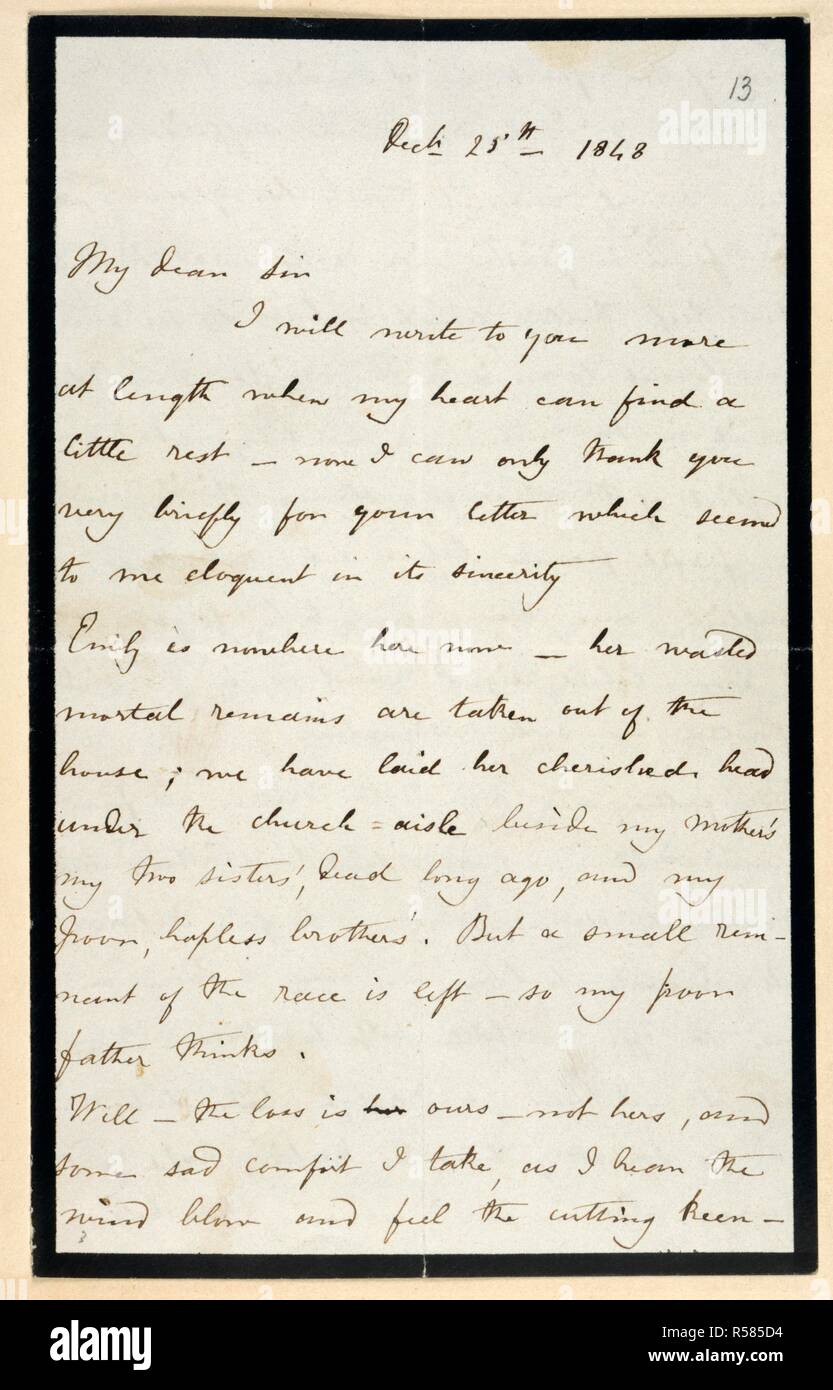 13
Decbr 25th 1848
My dear Sir
I will write to you more
at length when my heart can find a
little rest – now I can only thank you
very briefly for your letter which seemed
to me eloquent in its sincerity
Emily is nowhere here now – her wasted
mortal remains are taken out of the
house; we have laid her cherished head
under the church-aisle beside my mother's
my two sisters', dead long ago, and my
poor, hapless brother's. But a small rem-
nant of the race is left – so my poor
father thinks.
Well – the loss is her ours – not hers, and
some sad comfort I take, as I hear the
wind blow and feel the cutting keen-
alamy
Image ID: R585D4
www.alamy.com